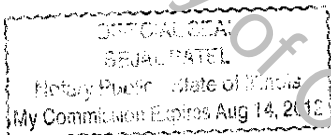 OFFICIAL SEAL
SEJAL PATEL
Notary Public State of Illinois
My Commission Expires Aug 14, 2012
of